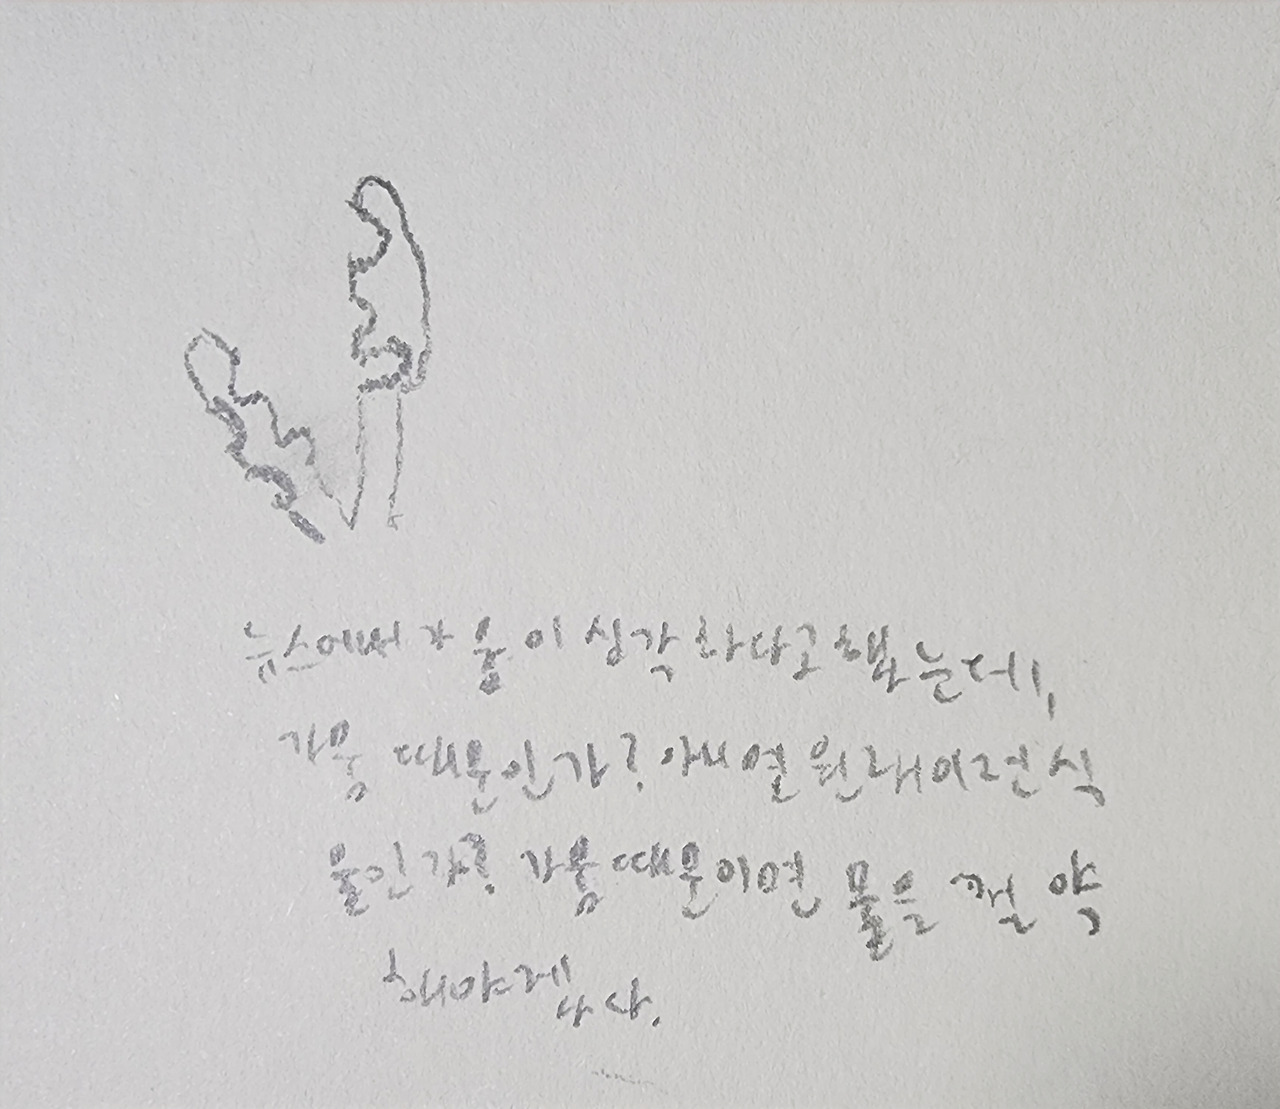 뉴스에서 가뭄이 심각하다고 했는데,
가뭄 때문인가? 아니면 원래 이런 식
물인가? 가뭄 때문이면 물을 절약
해야겠다.